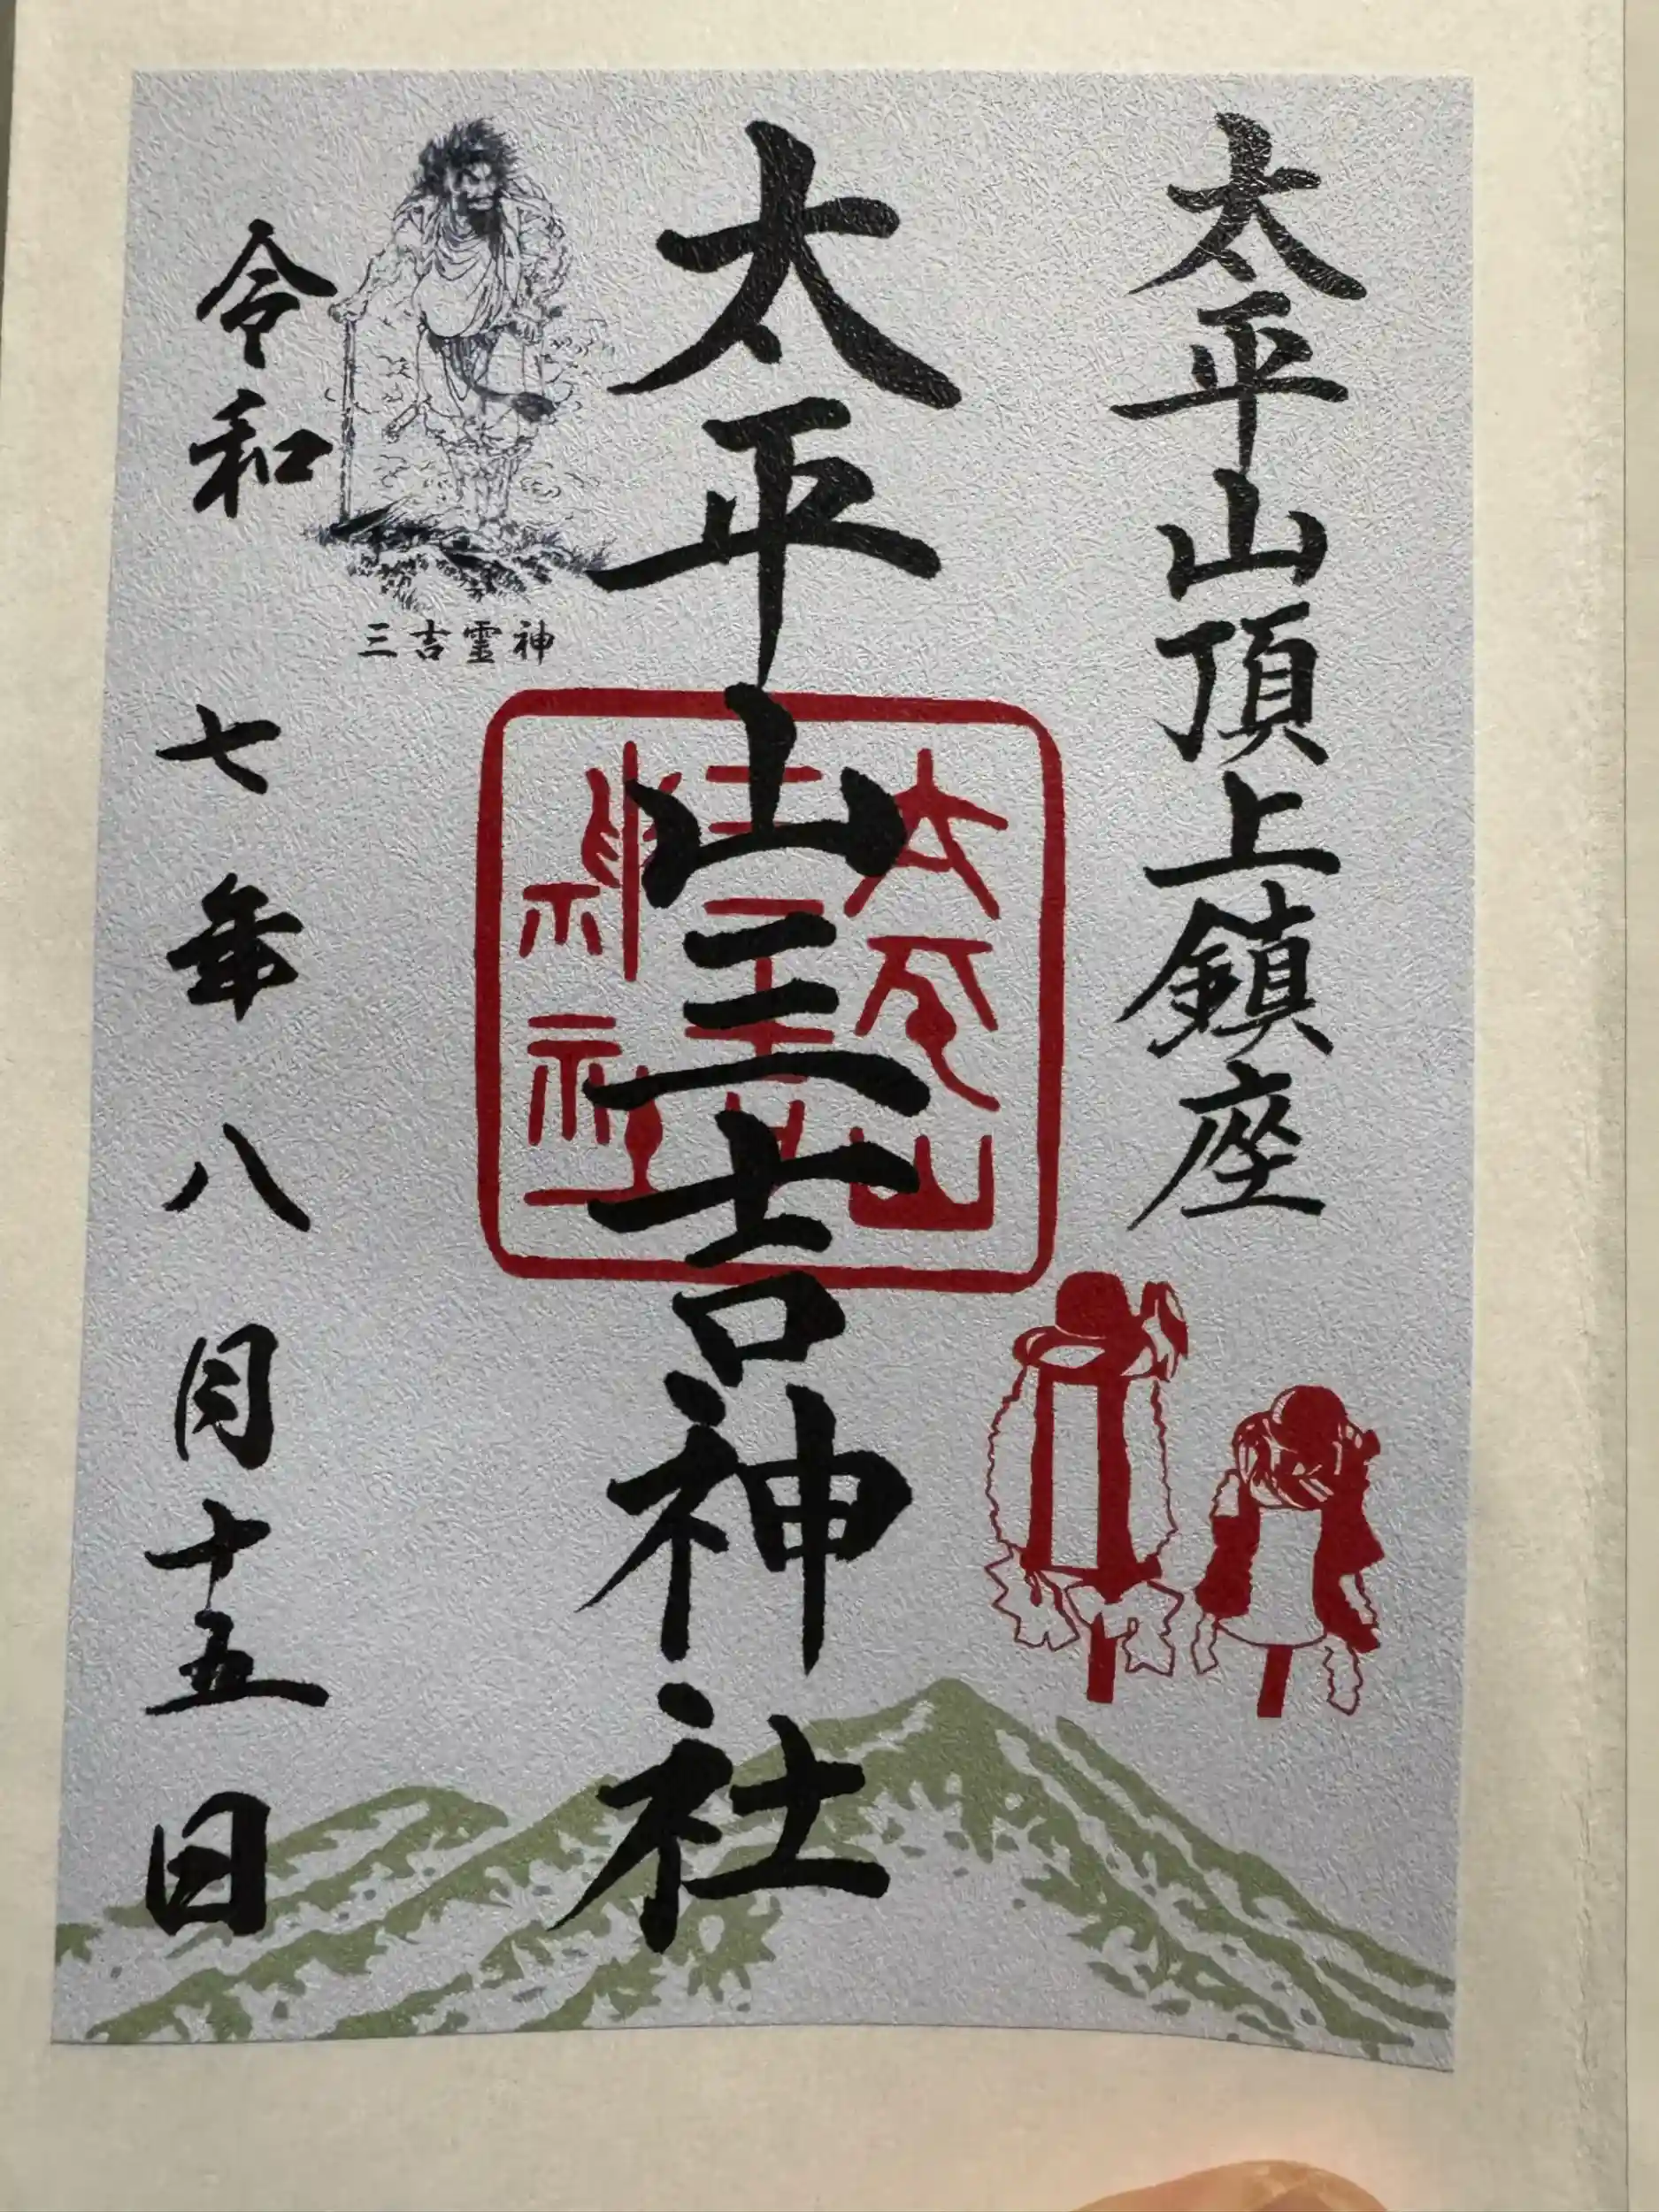 太平山頂上鎮座
太平山三吉神社
太平山
三吉
神社
三吉霊神
令和七年八月十五日